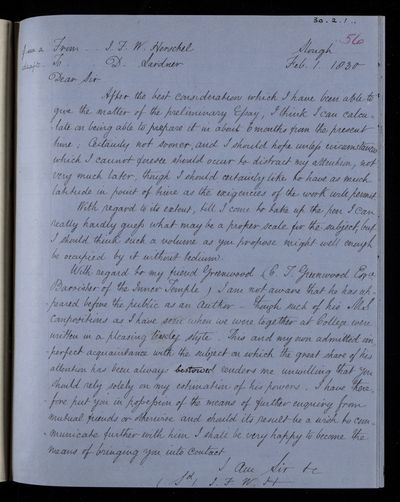 30.2.1.
56
from a From - J. F. W. Herschel Slough
draft - To D. Lardner Feb. 1. 1830
Dear Sir
After the best consideration which I have been able to
give the matter of the preliminary Essay, I think I can calcu-
late on being able to prepare it in about 6 months from the present
time; Certainly not sooner, and I should hope unless circumstances
which I cannot foresee should occur to distract my attention, not
very much later, though I should certainly like to have as much
latitude in point of time as the exigencies of the work will permit
With regard to its extent, till I come to take up the pen I can
really hardly guess what may be a proper scale for the subject, but
I should think such a volume as you propose might well enough
be occupied by it without tedium.
With regard to my friend Greenwood (C. T. Greenwood Esqre
Barrister of the Inner Temple) I am not aware that he has ap-
peared before the public as an Author - though such of his MS
Compositions as I have seen when we were together at College were
written in a pleasing style. This and my own admitted im-
perfect acquaintance with the subject on which the great share of his
attention has been always bestowed renders me unwilling that you
should rely solely on my estimation of his powers. I have there-
fore put you in possession of the means of further enquiry from
mutual friends or otherwise and should its result be a wish to com-
municate further with him I shall be very happy to become the
means of bringing you into contact
I am Sir &c
(Sd) J. F. W. H